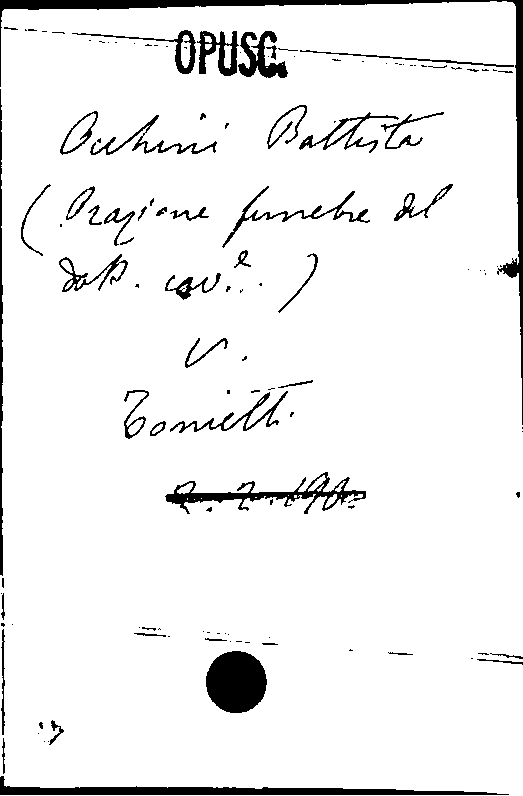 OPUSC.
Occhini Battista
(Orazione funebre del
dott. cav.e..)
V.
Tonietti